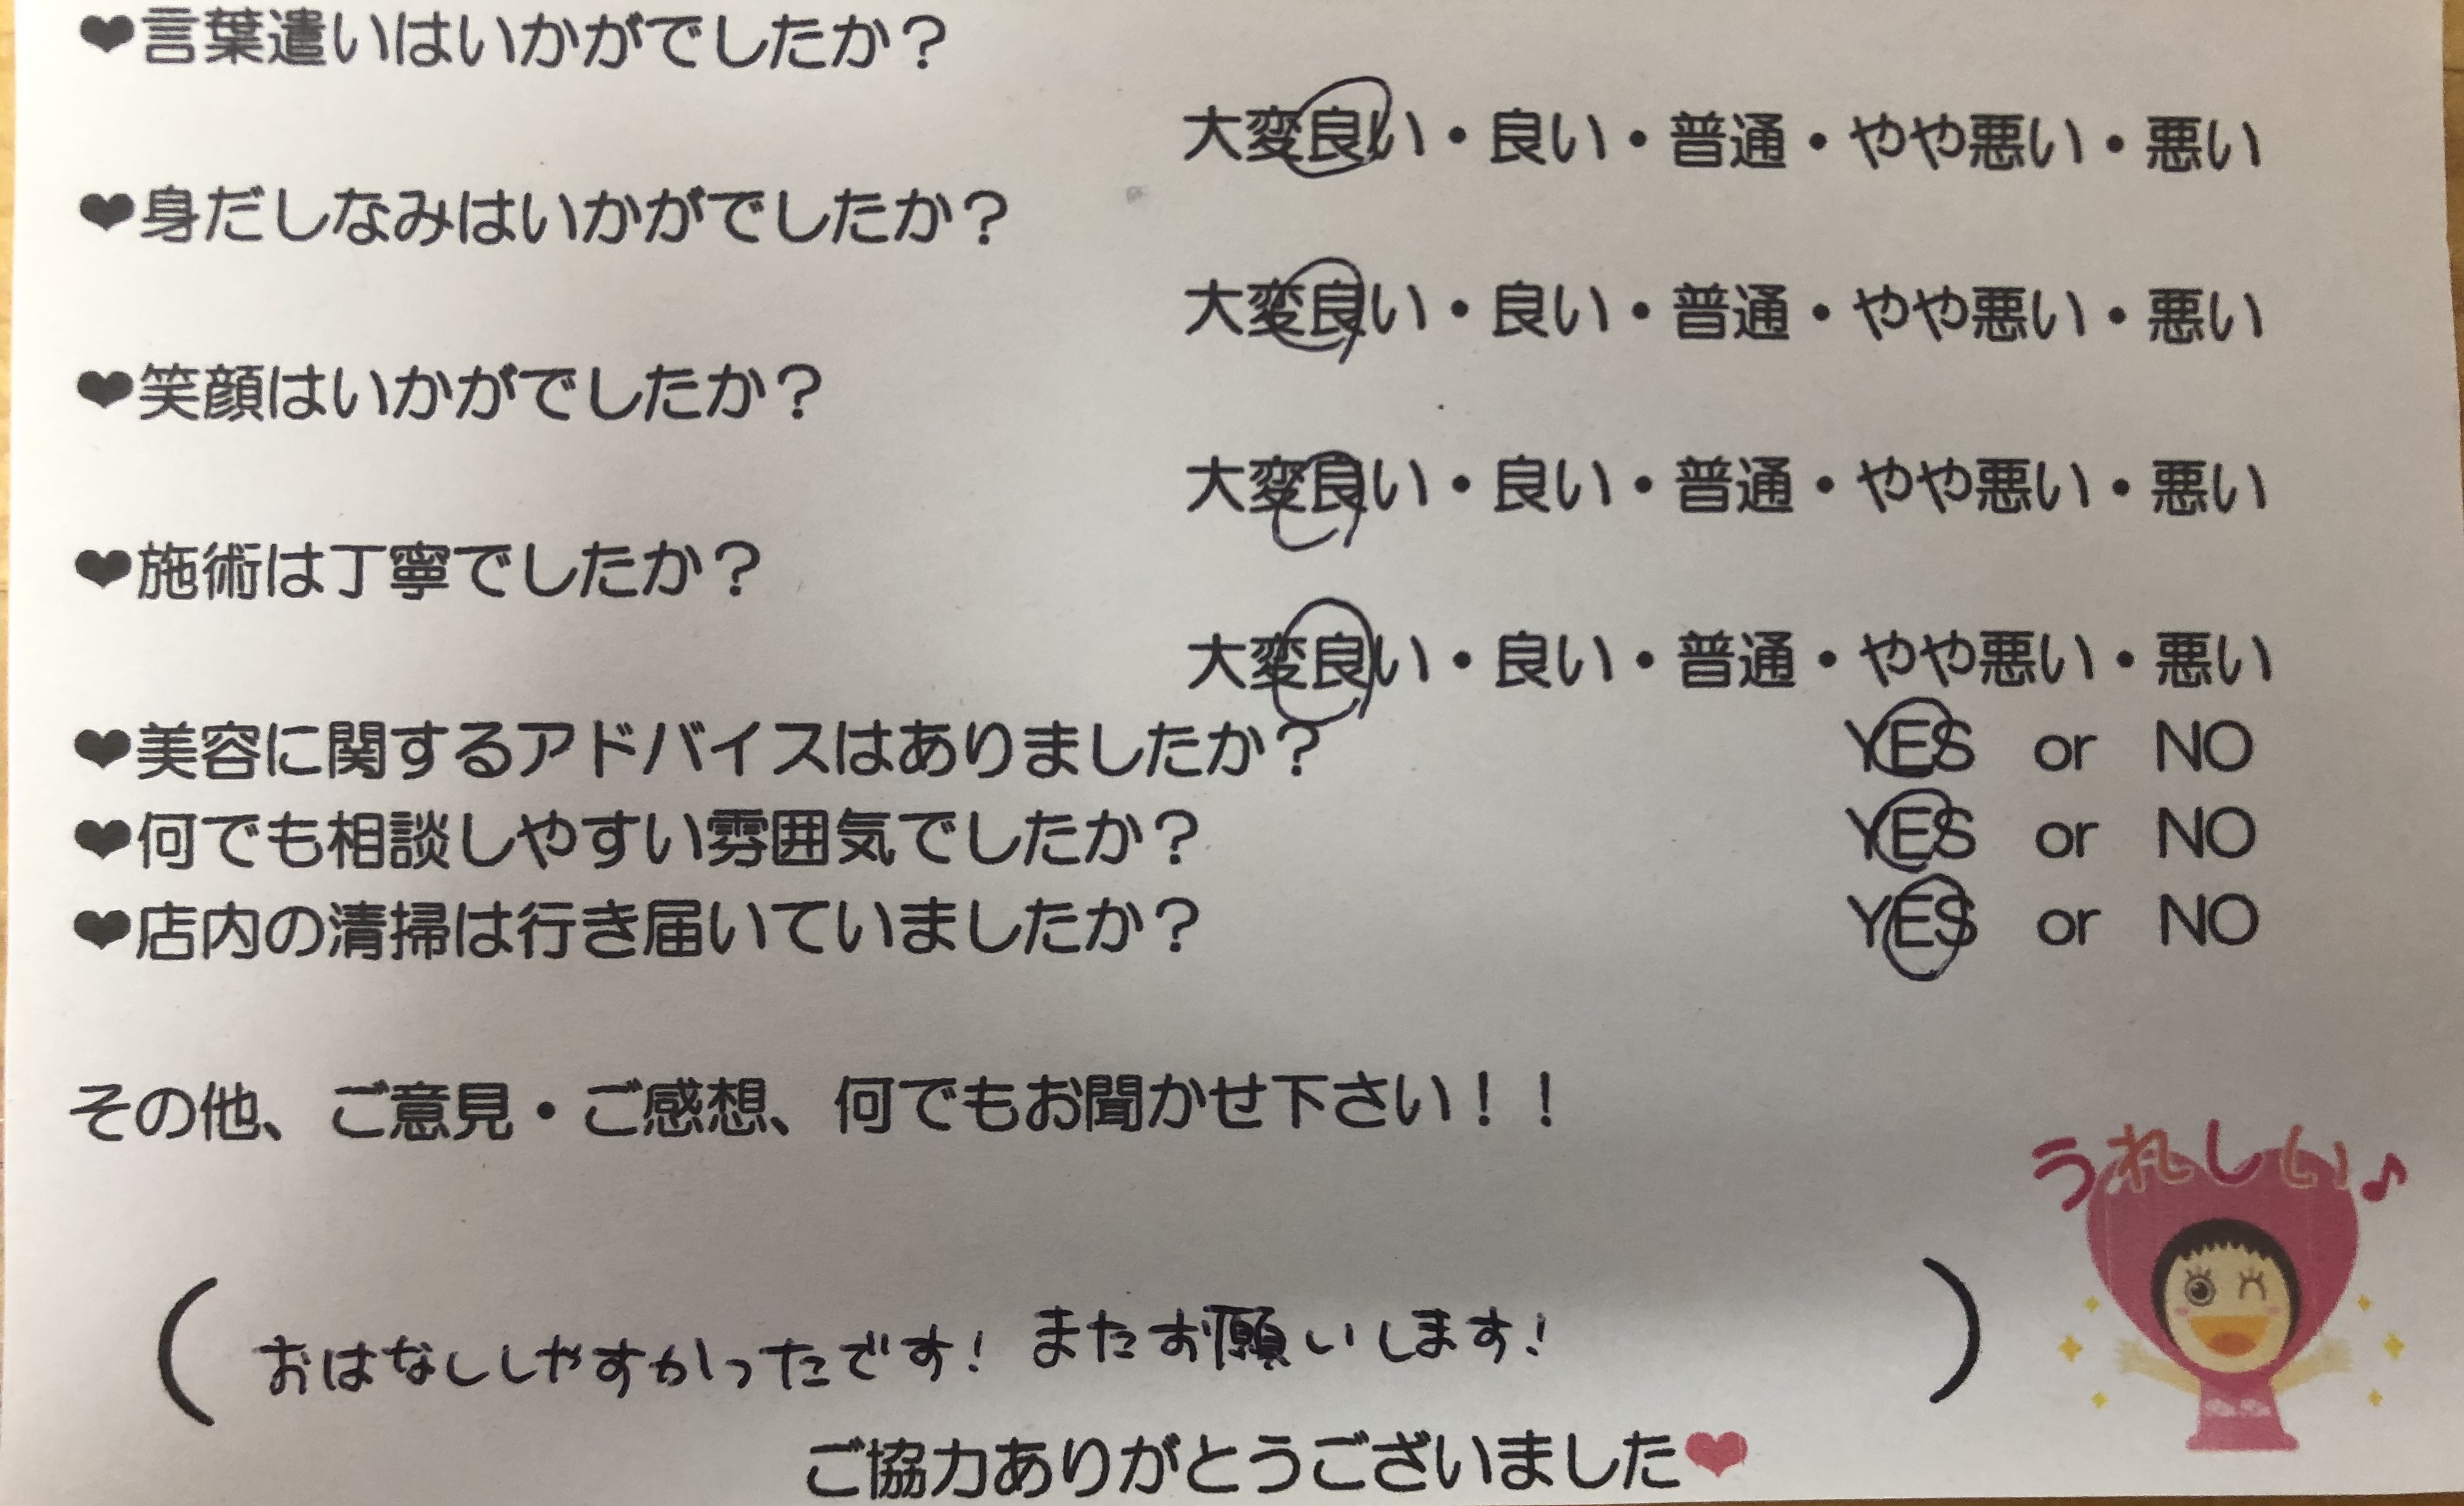 ❤言葉遣いはいかがでしたか？
大変良い・良い・普通・やや悪い・悪い
❤身だしなみはいかがでしたか？
大変良い・良い・普通・やや悪い・悪い
❤笑顔はいかがでしたか？
大変良い・良い・普通・やや悪い・悪い
❤施術は丁寧でしたか？
大変良い・良い・普通・やや悪い・悪い
❤美容に関するアドバイスはありましたか？ YES or NO
❤何でも相談しやすい雰囲気でしたか？ YES or NO
❤店内の清掃は行き届いていましたか？ YES or NO
その他、ご意見・ご感想、何でもお聞かせ下さい！！
うれしい♪
(おはなししやすかったです! またお願いします!)
ご協力ありがとうございました❤